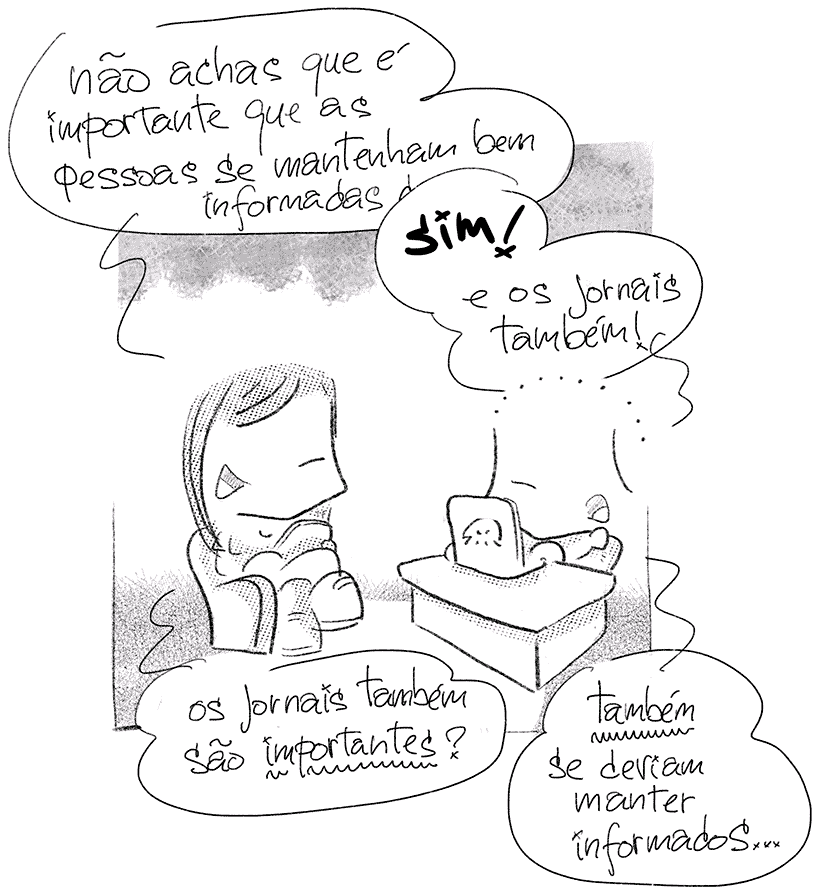 não achas que é
importante que as
pessoas se mantenham bem
informadas
sim!
e os jornais
também!
os jornais também
são importantes?
também
se deviam
manter
informados...